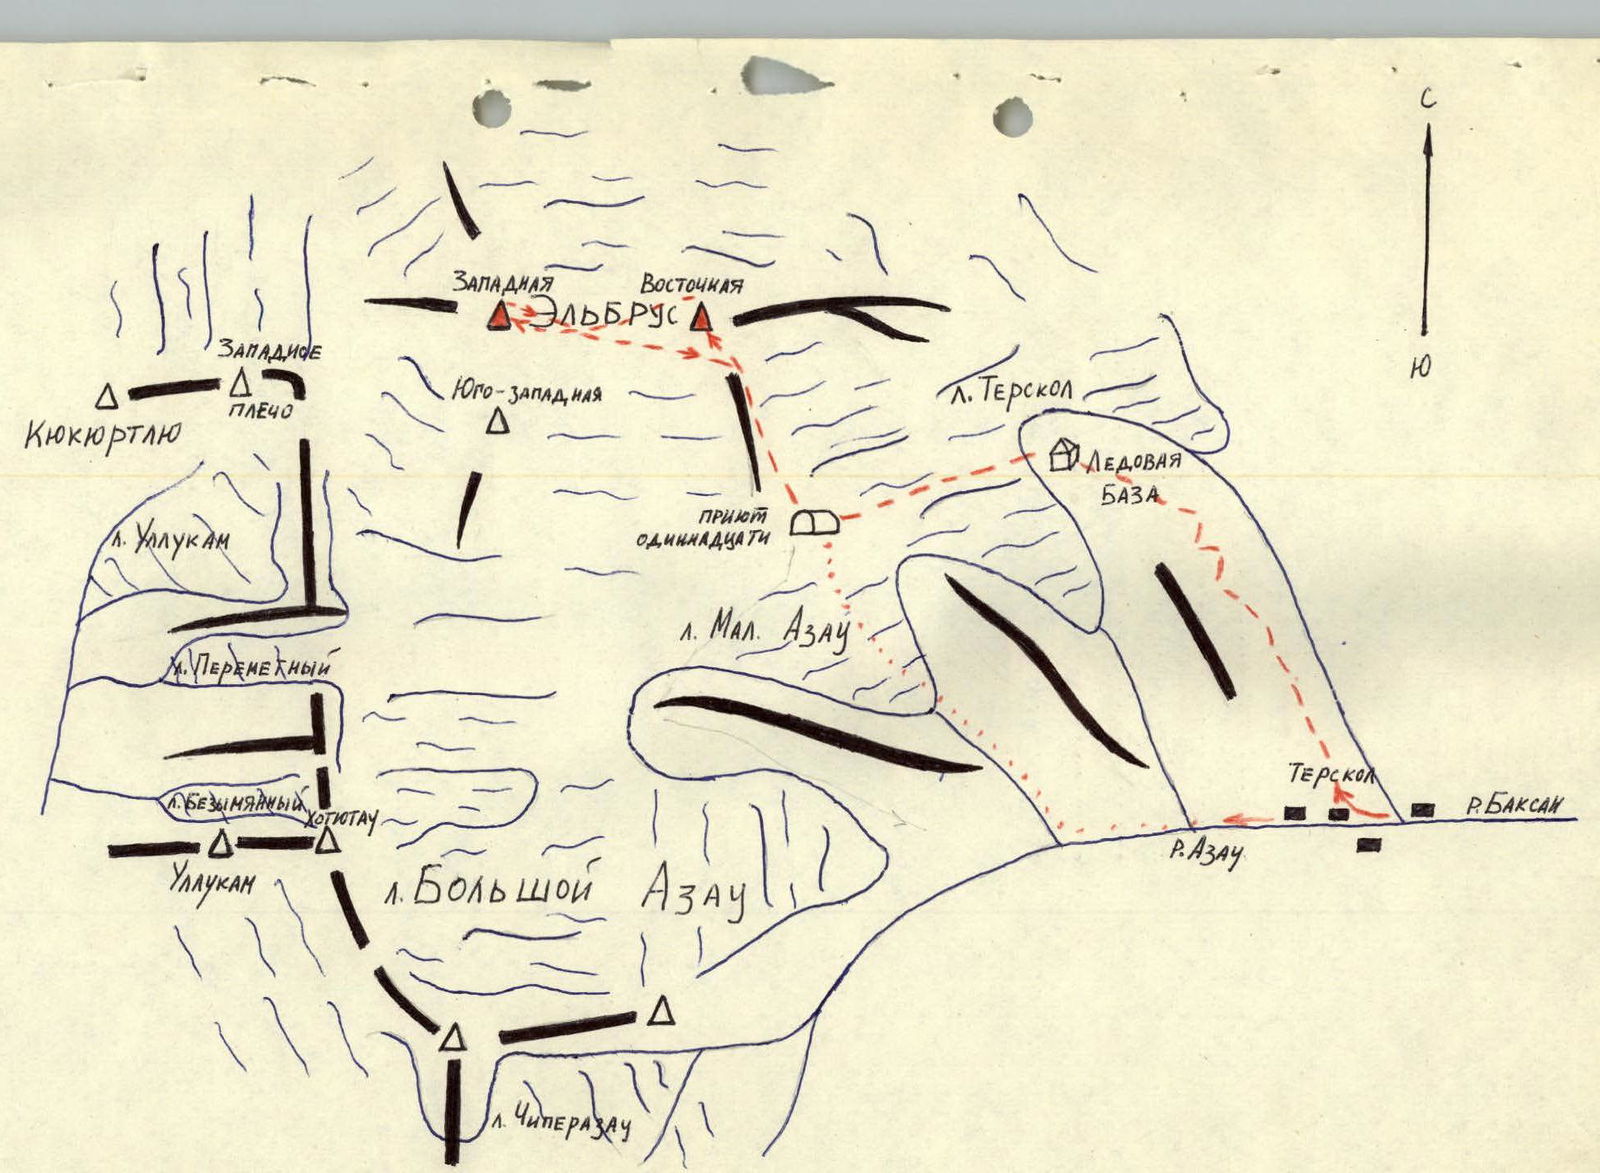 С
Западная
Восточная
Эльбрус
Западное
плечо
Ю
Юго-западная
л. Терскол
Кюкюртлю
Ледовая
база
приют
одиннадцати
л. Уллукам
л. Мал. Азау
л. Перемётный
Терскол
л. Безымянный
Хотютау
р. Баксан
р. Азау
Уллукам
л. Большой Азау
л. Чиперазау